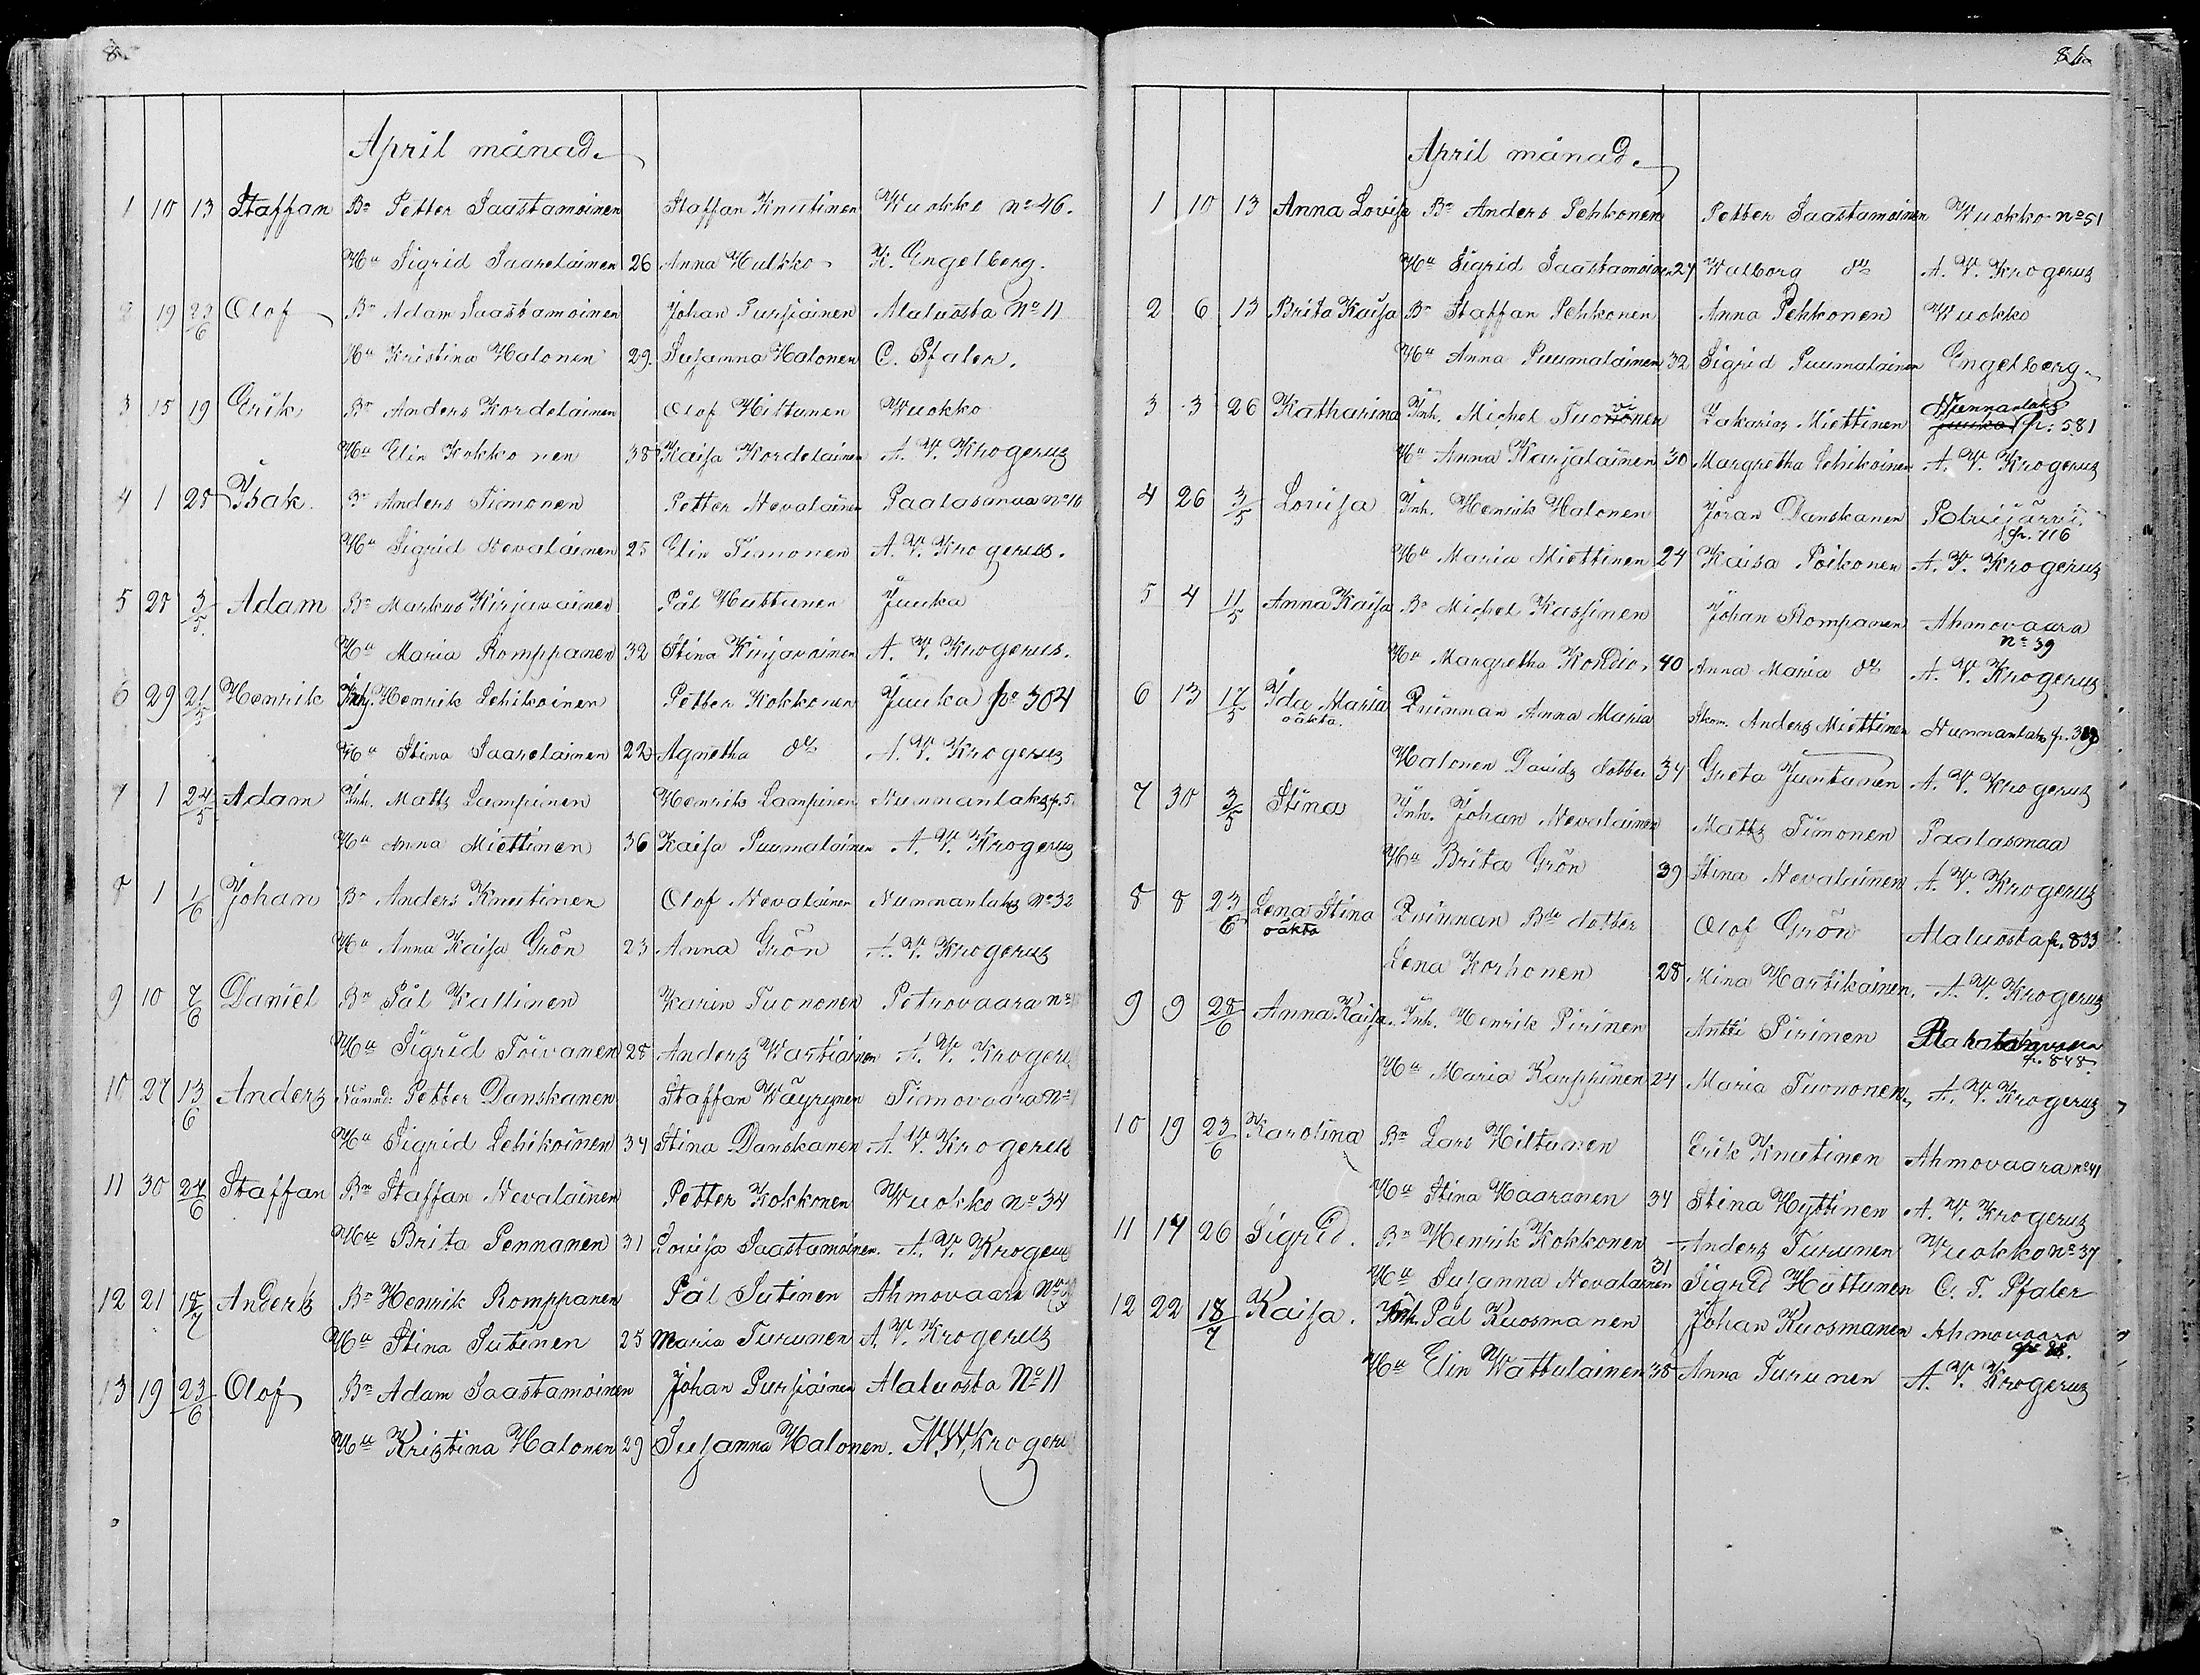 8.
April månad.
1 10 13 Staffan Bn Petter Saastamoinen Staffan Knutinen Wuokko No 46.
Hu Sigrid Saarelainen 26 Anna Hukko K. Engelberg.
2 19 23/6 Olof Bn Adam Saastamoinen Johan Pursiainen Aluosta No 11
Hu Kristina Halonen 29. Susanna Halonen C. Pfaler.
3 15 19 Erik Bn Anders Kordelainen Olof Hiltunen Wuokko
Hu Elin Kokkonen 38 Kaisa Kordelainen A. W. Krogerus
4 1 25 Isak. Bn Anders Timonen Petter Nevalainen Paalasmaa No 10
Hu Sigrid Nevalainen 25 Elin Timonen A. W. Krogerus.
5 25 3/5 Adam Bn Markus Kirjavainen Pål Huttunen Juuka
Hu Maria Romppanen 32 Stina Kirjavainen A. W. Krogerus.
6 29 21/5 Henrik Inh. Henrik Lehikoinen Petter Kokkonen Juuka p. 304
Hu Stina Saarelainen 22 Agnetha do A. W. Krogerus
7 1 24/5 Adam Inh. Matts Lampinen Henrik Lampinen Nunnanlaks p. 5
Hu Anna Miettinen 36 Kaisa Puumalainen A. W. Krogerus
8 1 1/6 Johan Bn Anders Knutinen Olof Nevalainen Nunnanlaks No 32
Hu Anna Kaisa Grön 23 Anna Grön A. W. Krogerus
9 10 7/6 Daniel Bn Pål Kallinen Karin Tuononen Petrovaara No
Hu Sigrid Toivanen 28 Anders Wartiainen A. W. Krogerus
10 27 13/6 Anders Nämnd: Petter Danskanen Staffan Wäyrynen Timovaara No
Hu Sigrid Lehikoinen 34 Stina Danskanen A. W. Krogerus
11 30 24/6 Staffan Bn Staffan Nevalainen Petter Kokkonen Wuokko No 34
Hu Brita Pennanen 31 Lovisa Saastamoinen. A. W. Krogerus
12 21 18/7 Anders Bn Henrik Romppanen Pål Sutinen Ahmovaara No
Hu Stina Sutinen 25 Maria Turunen A. W. Krogerus
13 19 23/6 Olof Bn Adam Saastamoinen Johan Pursiainen Alaluosta No 11
Hu Kristina Halonen 29 Susanna Halonen. A. W. Krogerus
April månad.
1 10 13 Anna Lovisa Bn Anders Pehkonen Petter Saastamoinen Wuokko No 51
Hu Sigrid Saastamoinen 27 Walborg do A. W. Krogerus
2 6 13 Brita Kaisa Bn Staffan Pehkonen Anna Pehkonen Wuokko
Hu Anna Puumalainen 32 Sigrid Puumalainen Engelberg.
3 3 26 Katharina Inh. Michel Tuononen Zakarias Miettinen Nunnanlaks p: 581
Hu Anna Karjalainen 30 Margretha Lehikoinen A. W. Krogerus
4 26 3/5 Lovisa Inh. Henrik Halonen Jöran Danskanen Polvijärvi p. 716
Hu Maria Miettinen 24 Kaisa Poikonen A. W. Krogerus
5 4 11/5 Anna Kaisa Bn Michel Kassinen Johan Rompanen Ahmovaara No 39
Hu Margretha 40 Anna Maria do A. W. Krogerus
6 13 17/5 Ida Maria oäkta. Qvinnan Anna Maria Anders Miettinen Nunnanlaks
Halonen Davids dotter 34 Greta Juntunen A. W. Krogerus
7 30 3/5 Stina Inh. Johan Nevalainen Matts Timonen Paalasmaa
Hu Brita Grön 39 Stina Nevalainen A. W. Krogerus
8 8 23/6 Lena Stina oäkta Qvinnan Bde dotter Olof Grön Alaluosta p. 833
Lena Korhonen 28 Mina Hartikainen. A. W. Krogerus
9 9 28/6 Anna Kaisa. Inh. Henrik Pirinen Antti Pirinen p. 848.
Hu Maria Karppinen 24 Maria Tuononen, A. W. Krogerus
10 19 23/6 Karolina Bn Lars Hiltunen Erik Knutinen Ahmovaara No 41
Hu Stina Haaranen 34 Stina Hyttinen A. W. Krogerus
11 14 26 Sigrid. Bn Henrik Kokkonen Anders Turunen Wuokko No 37
Hu Susanna Nevalainen 31 Sigrid Huttunen C. F. Pfaler
12 22 18/7 Kaisa. Inh. Pål Kuosmanen Johan Kuosmanen Ahmovaara p. 88.
Hu Elin Wattulainen 38 Anna Turunen A. W. Krogerus